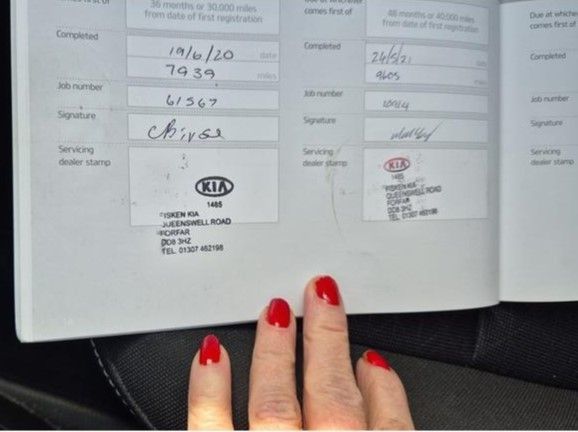 36 months or 30,000 miles
from date of first registration
Completed
19/6/20 date
7939 miles
Job number
61567
Signature
Servicing
dealer stamp
KIA
1485
FISKEN KIA
QUEENSWELL ROAD
FORFAR
DD8 3HZ
TEL. 01307 462198
comes first of
48 months or 40,000 miles
from date of first registration
Completed
24/5/21
9605
Job number
Signature
Servicing
dealer stamp
KIA
1485
FISKEN KIA
QUEENSWELL ROAD
FORFAR
DD8 3HZ
TEL. 01307 462198
Due at
comes first of
Completed
Job number
Signature
Servicing
dealer stamp